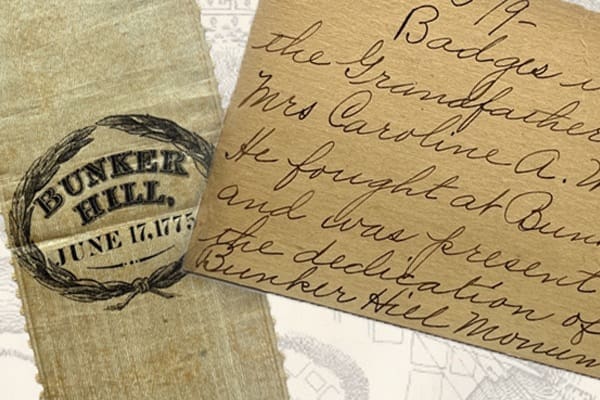 BUNKER
HILL,
JUNE 17, 1775
19-
Badges
the Grandfather
Mrs Caroline A.
He fought at
and was present
the dedication of
Bunker Hill